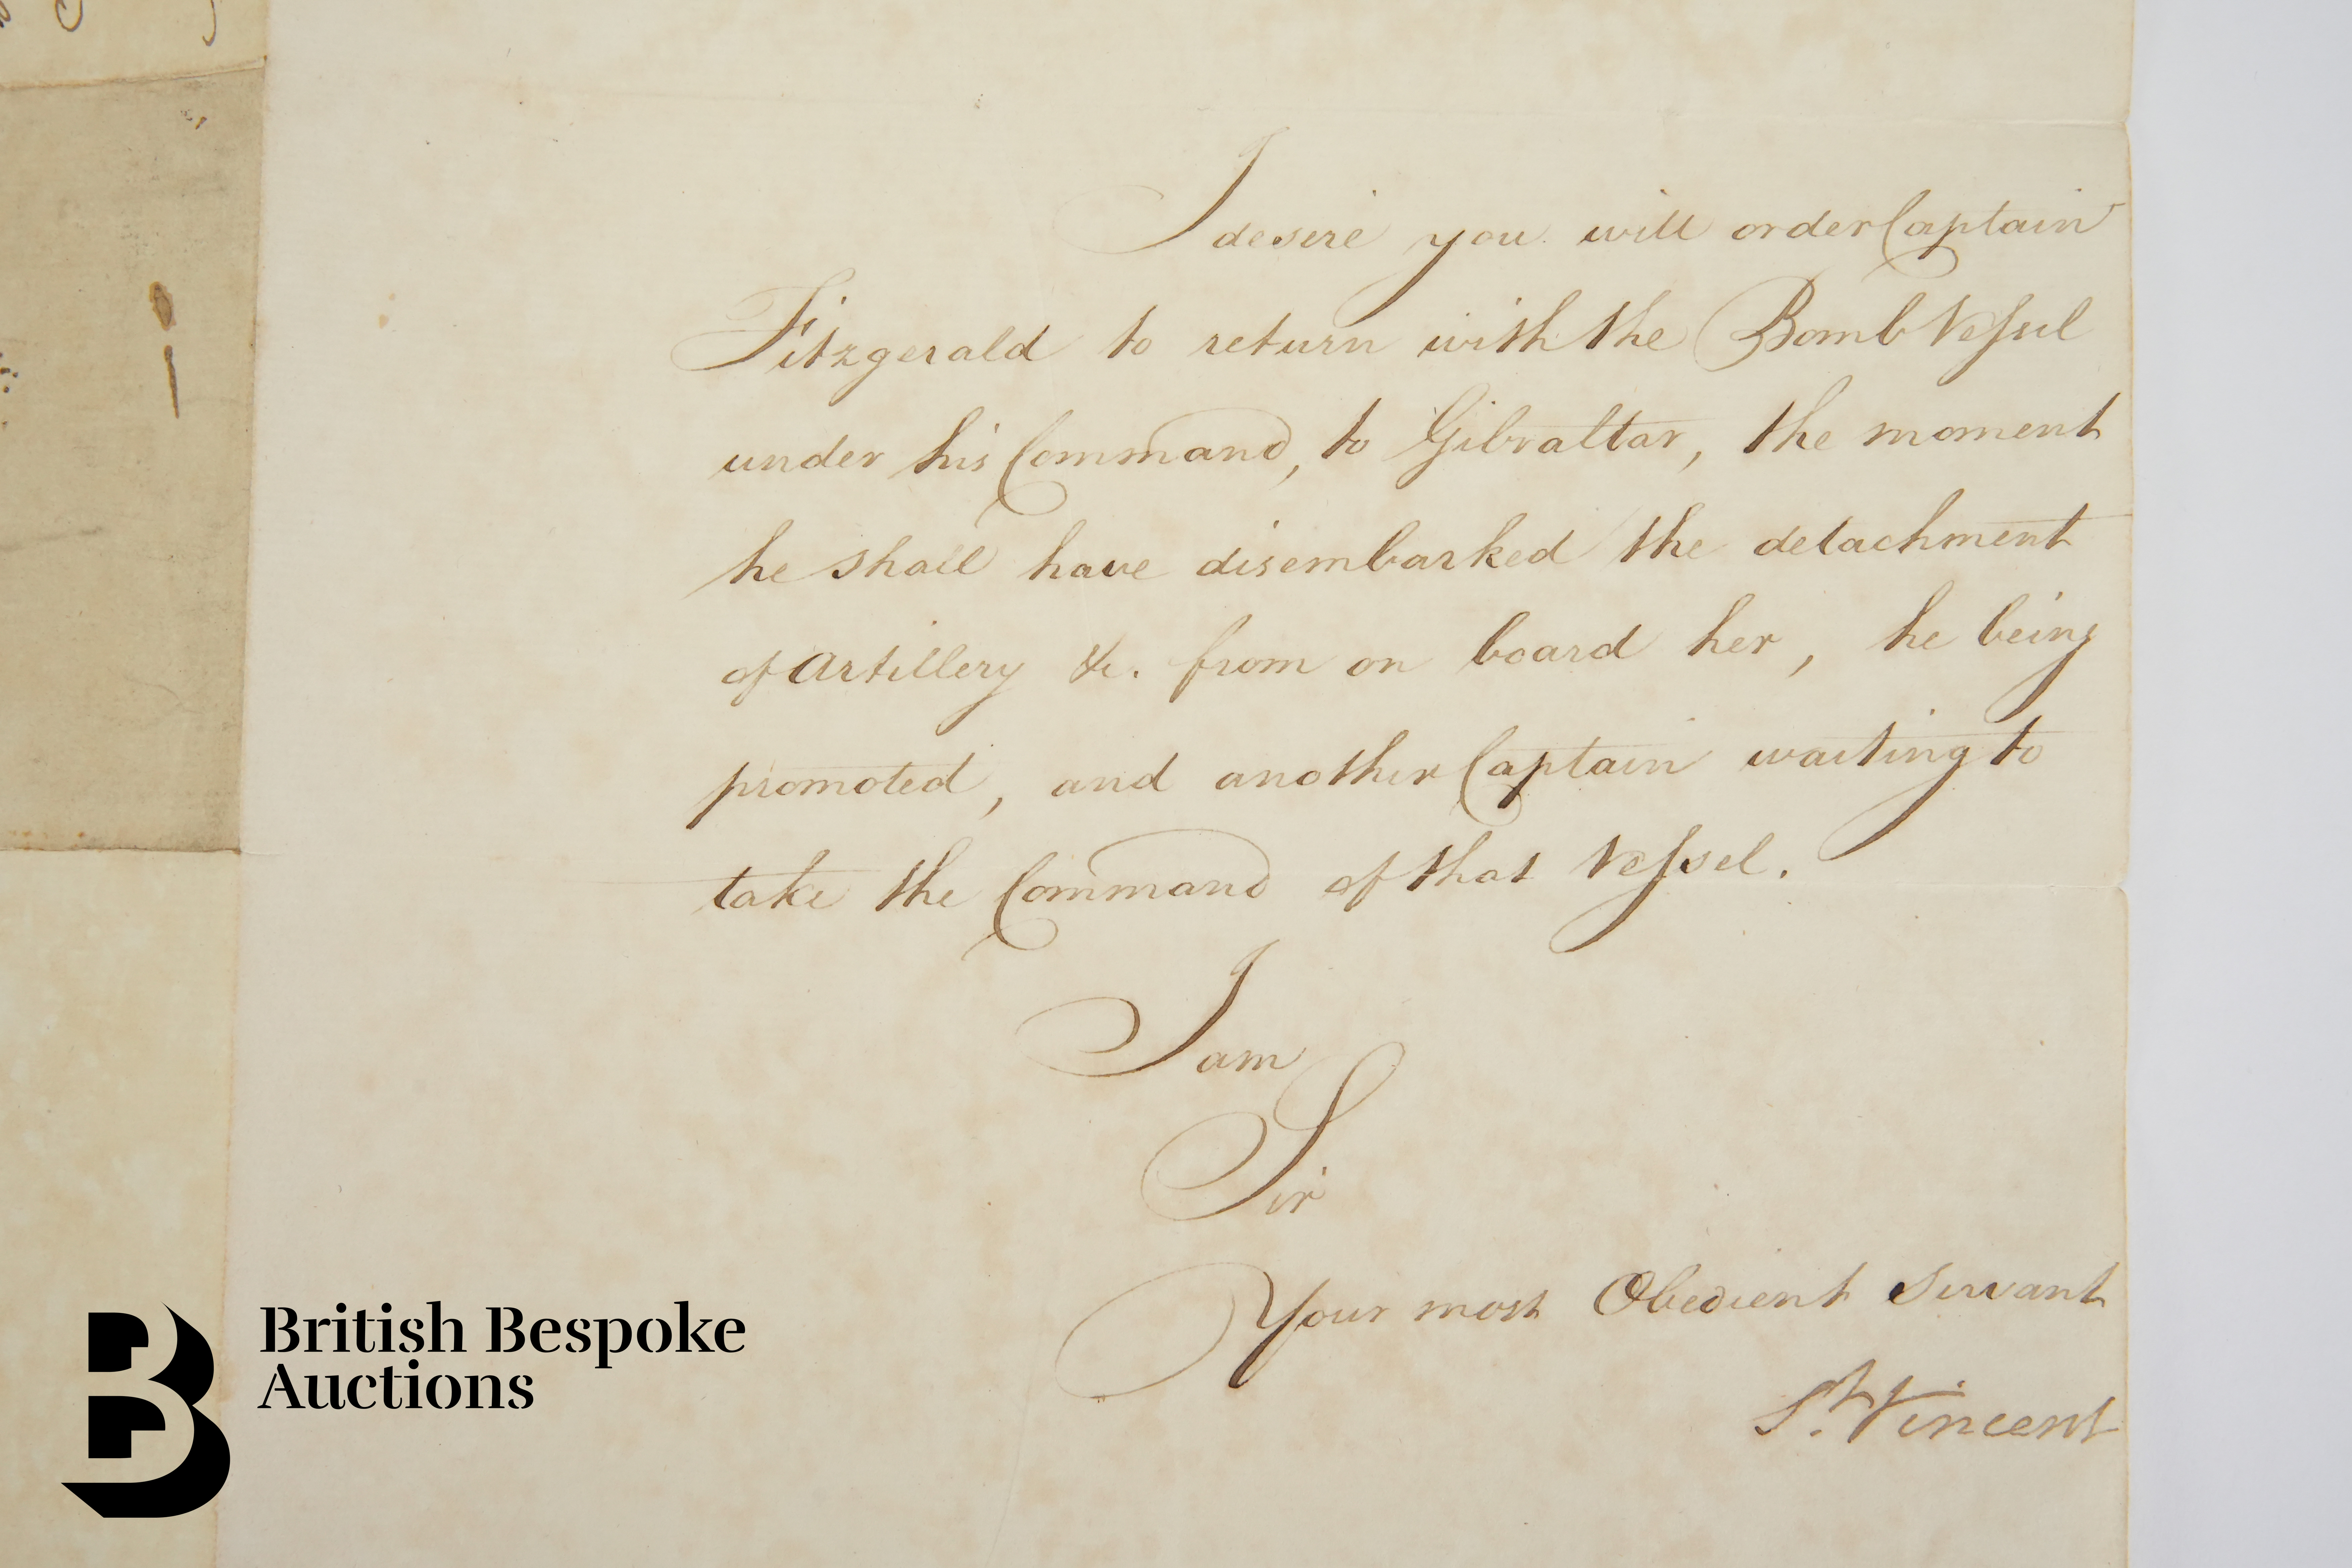 I desire you will order Captain
Fitzgerald to return with the Bomb Veſsel
under his Command, to Gibraltar, the moment
he shall have disembarked the detachment
of Artillery &c. from on board her, he being
promoted, and another Captain waiting to
take the Command of that Veſsel.
I am
Sir
Your most Obedient Servant
St. Vincent
British Bespoke
Auctions